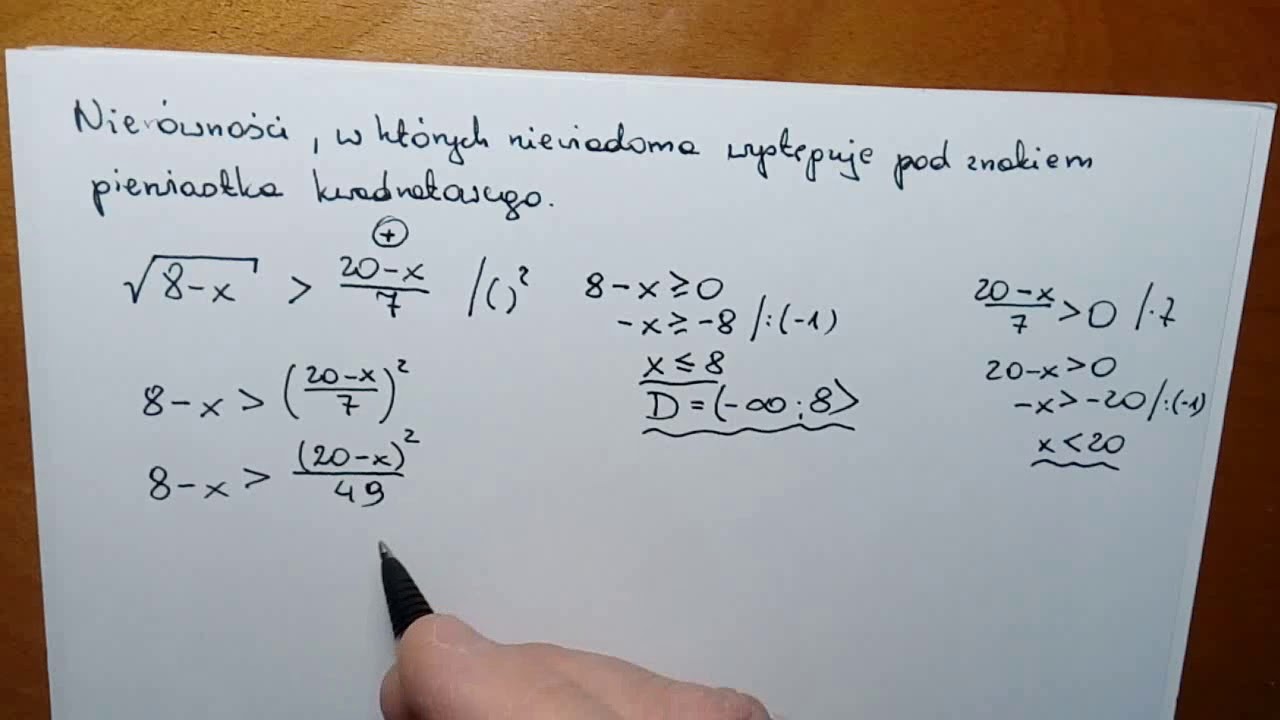 Nierówności, w których niewiadoma występuje pod znakiem
pierwiastka kwadratowego.
√(8-x) > (20-x)/7 /()²
(+)
8-x > ((20-x)/7)²
8-x > (20-x)²/49
8-x ≥ 0
-x ≥ -8 /:(-1)
x ≤ 8
D = (-∞;8⟩
(20-x)/7 > 0 /·7
20-x > 0
-x > -20 /:(-1)
x < 20